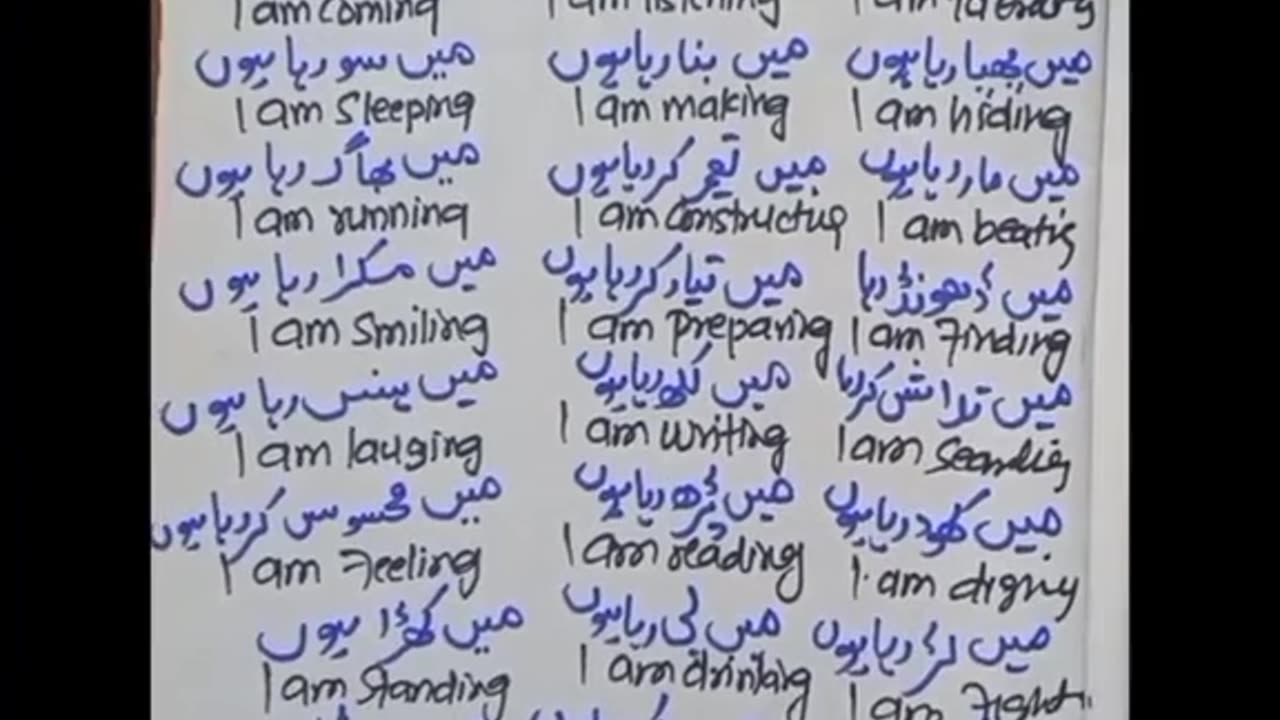 I am coming
میں سو رہا ہوں
I am Sleeping
میں بھاگ رہا ہوں
I am running
میں مسکرا رہا ہوں
I am Smiling
میں ہنس رہا ہوں
I am lauging
میں محسوس کر رہا ہوں
I am Feeling
میں کھڑا ہوں
I am Standing
I am listening
میں بنا رہا ہوں
I am making
میں تعمیر کر رہا ہوں
I am Constructing
میں تیار کر رہا ہوں
I am preparing
میں لکھ رہا ہوں
I am writing
میں پڑھ رہا ہوں
I am reading
میں پی رہا ہوں
I am drinking
I am
میں چھپا رہا ہوں
I am hiding
میں مار رہا ہوں
I am beating
میں ڈھونڈ رہا
I am Finding
میں تلاش کر رہا
I am
میں کھود رہا ہوں
I am
میں لڑ رہا ہوں
I am Fight